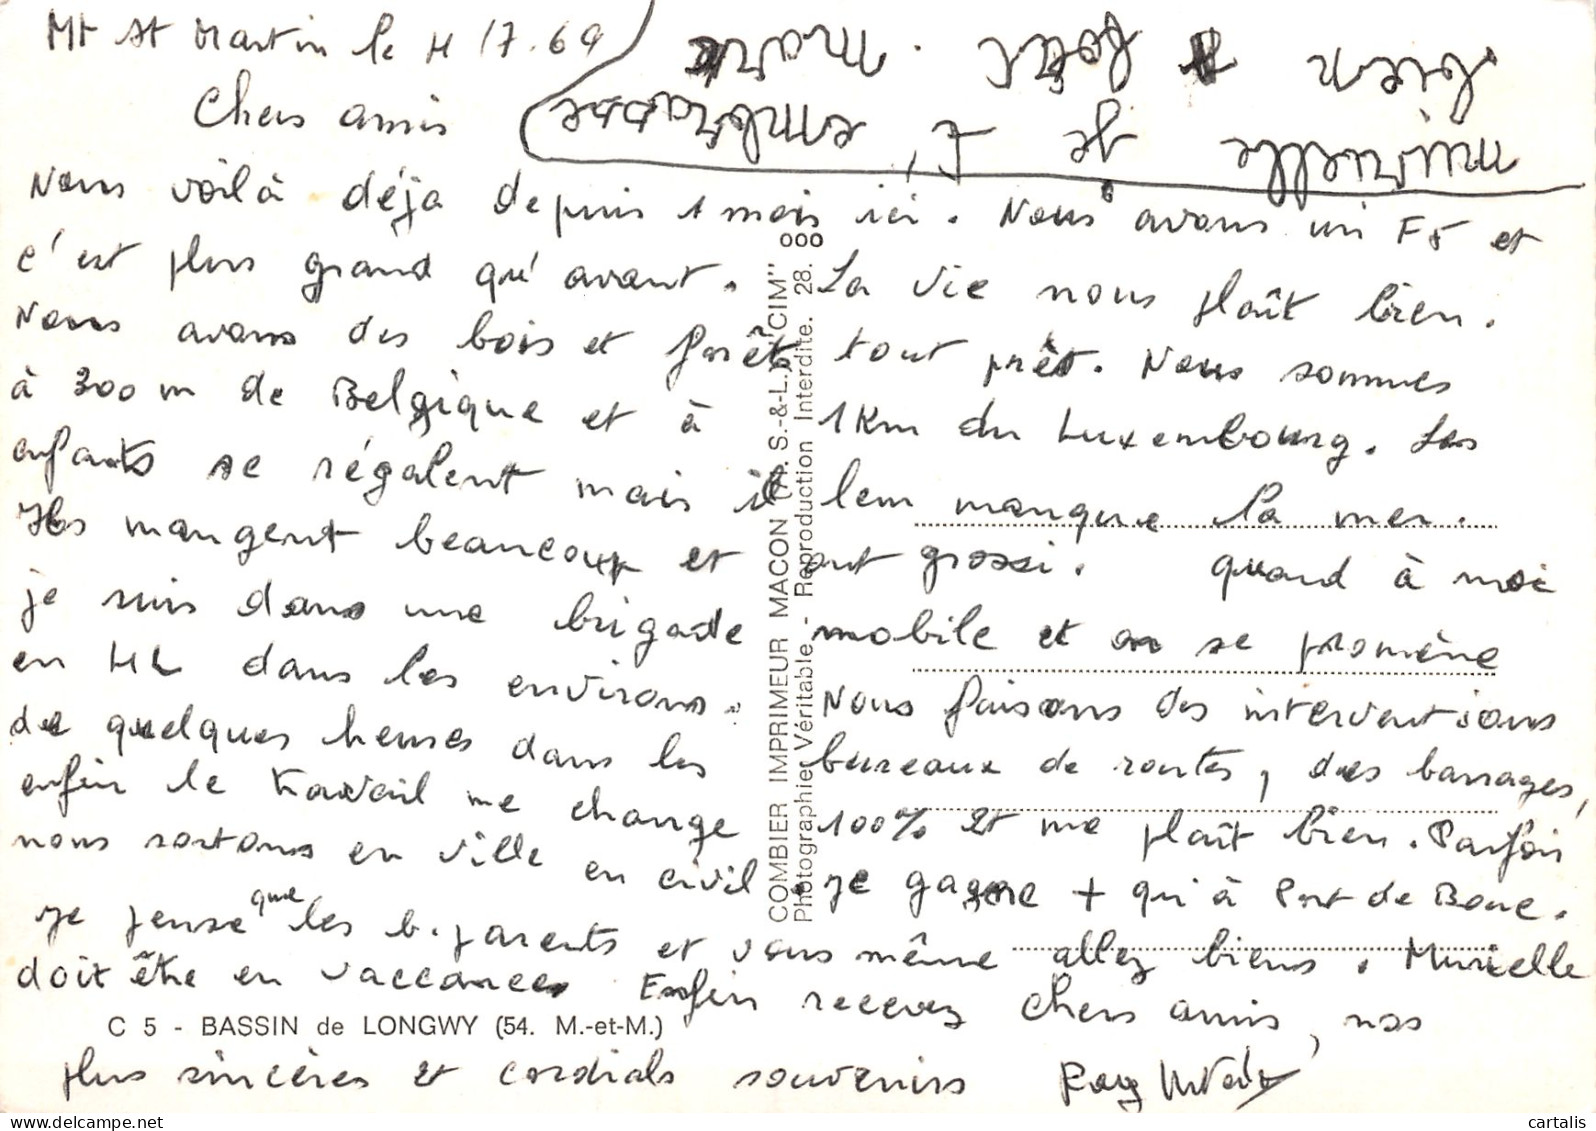 Mt St Martin le 4/7.69
Chers amis
Nous voilà déjà depuis 1 mois ici. Nous avons un F5 et
c'est plus grand qu'avant. La vie nous plaît bien.
Nous avons des bois et forêts tout prêt. Nous sommes
à 300m de Belgique et à 1Km du Luxembourg. Les
enfants se régalent mais il leur manque la mer.
Ils mangent beaucoup et ont grossi. quand à moi
je suis dans une brigade mobile et on se promène
en HL dans les environs. Nous faisons des interventions
de quelques heures dans les bureaux de routes, des barrages,
enfin le travail me change 100% et me plaît bien. Parfois
nous sortons en ville en civil. je gagne + qu'à Port de Bouc.
je pense que les b.parents et vous même allez biens. Murielle
doit être en vaccances. Enfin recevez chers amis, nos
plus sincères et cordials souvenirs
murielle je t'embrasse
bien fort. marc
COMBIER IMPRIMEUR MACON (A. S.-&-L.) "CIM"
Photographie Véritable - Reproduction Interdite. 28. 000
C 5 - BASSIN de LONGWY (54. M.-et-M.)
cartalis